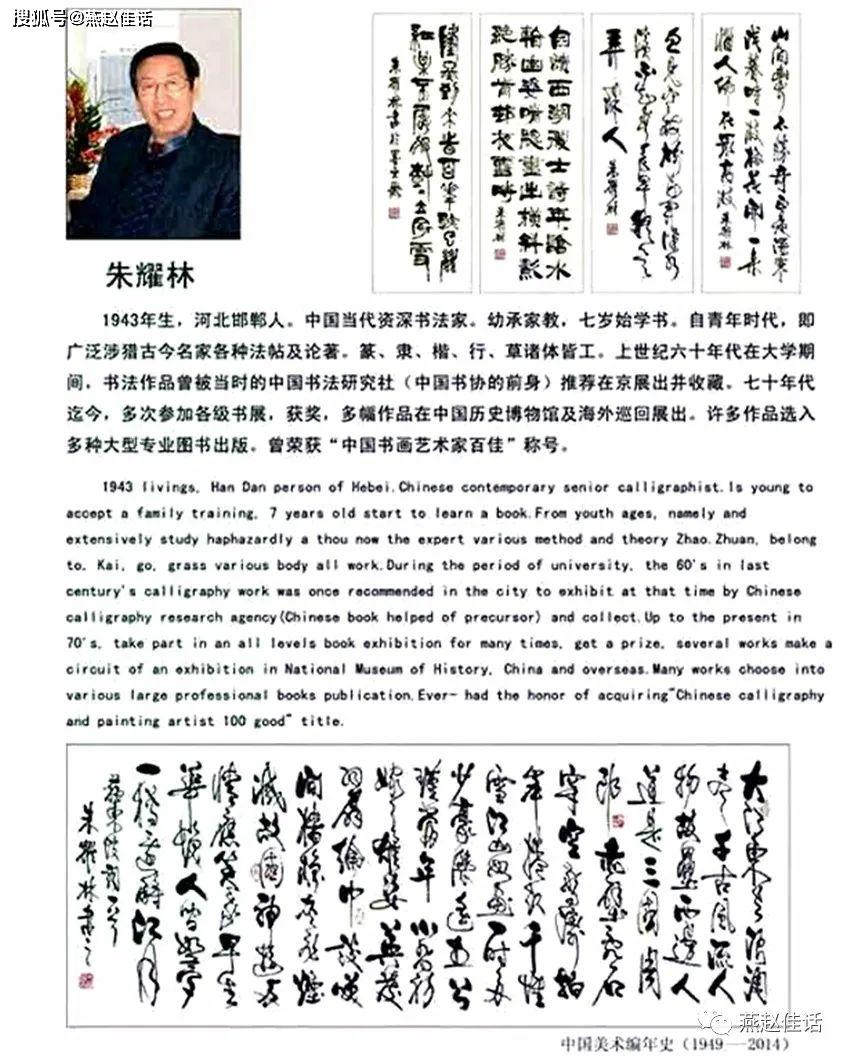 搜狐号@燕赵佳话
自讀西湖處士詩年年臨水
幽姿晴窗畫出橫斜影
絕勝前村夜雪時
朱耀林
朱耀林
朱耀林
朱耀林
1943年生，河北邯郸人。中国当代资深书法家。幼承家教，七岁始学书。自青年时代，即
广泛涉猎古今名家各种法帖及论著。篆、隶、楷、行、草诸体皆工。上世纪六十年代在大学期
间，书法作品曾被当时的中国书法研究社（中国书协的前身）推荐在京展出并收藏。七十年代
迄今，多次参加各级书展，获奖，多幅作品在中国历史博物馆及海外巡回展出。许多作品选入
多种大型专业图书出版。曾荣获“中国书画艺术家百佳”称号。
1943 livings, Han Dan person of Hebei.Chinese contemporary senior calligraphist.Is young to
accept a family training, 7 years old start to learn a book.From youth ages, namely and
extensively study haphazardly a thou now the expert various method and theory Zhao.Zhuan, belong
to, Kai, go, grass various body all work.During the period of university, the 60's in last
century's calligraphy work was once recommended in the city to exhibit at that time by Chinese
calligraphy research agency(Chinese book helped of precursor) and collect.Up to the present in
70's, take part in an all levels book exhibition for many times, get a prize, several works make a
circuit of an exhibition in National Museum of History, China and overseas.Many works choose into
various large professional books publication.Ever- had the honor of acquiring"Chinese calligraphy
and painting artist 100 good" title.
大江東去浪淘
盡千古風流人
物故壘西邊人
道是三國周
郎赤壁亂石
穿空驚濤拍
岸捲起千堆
雪江山如畫一時多
少豪傑遙想公
瑾當年小喬初
嫁了雄姿英發
羽扇綸巾談笑
間檣櫓灰飛煙
滅故國神遊多
情應笑我早生
華髮人間如夢
一樽還酹江月
蘇東坡詞一首
朱耀林書之
燕赵佳话
中国美术编年史（1949—2014）